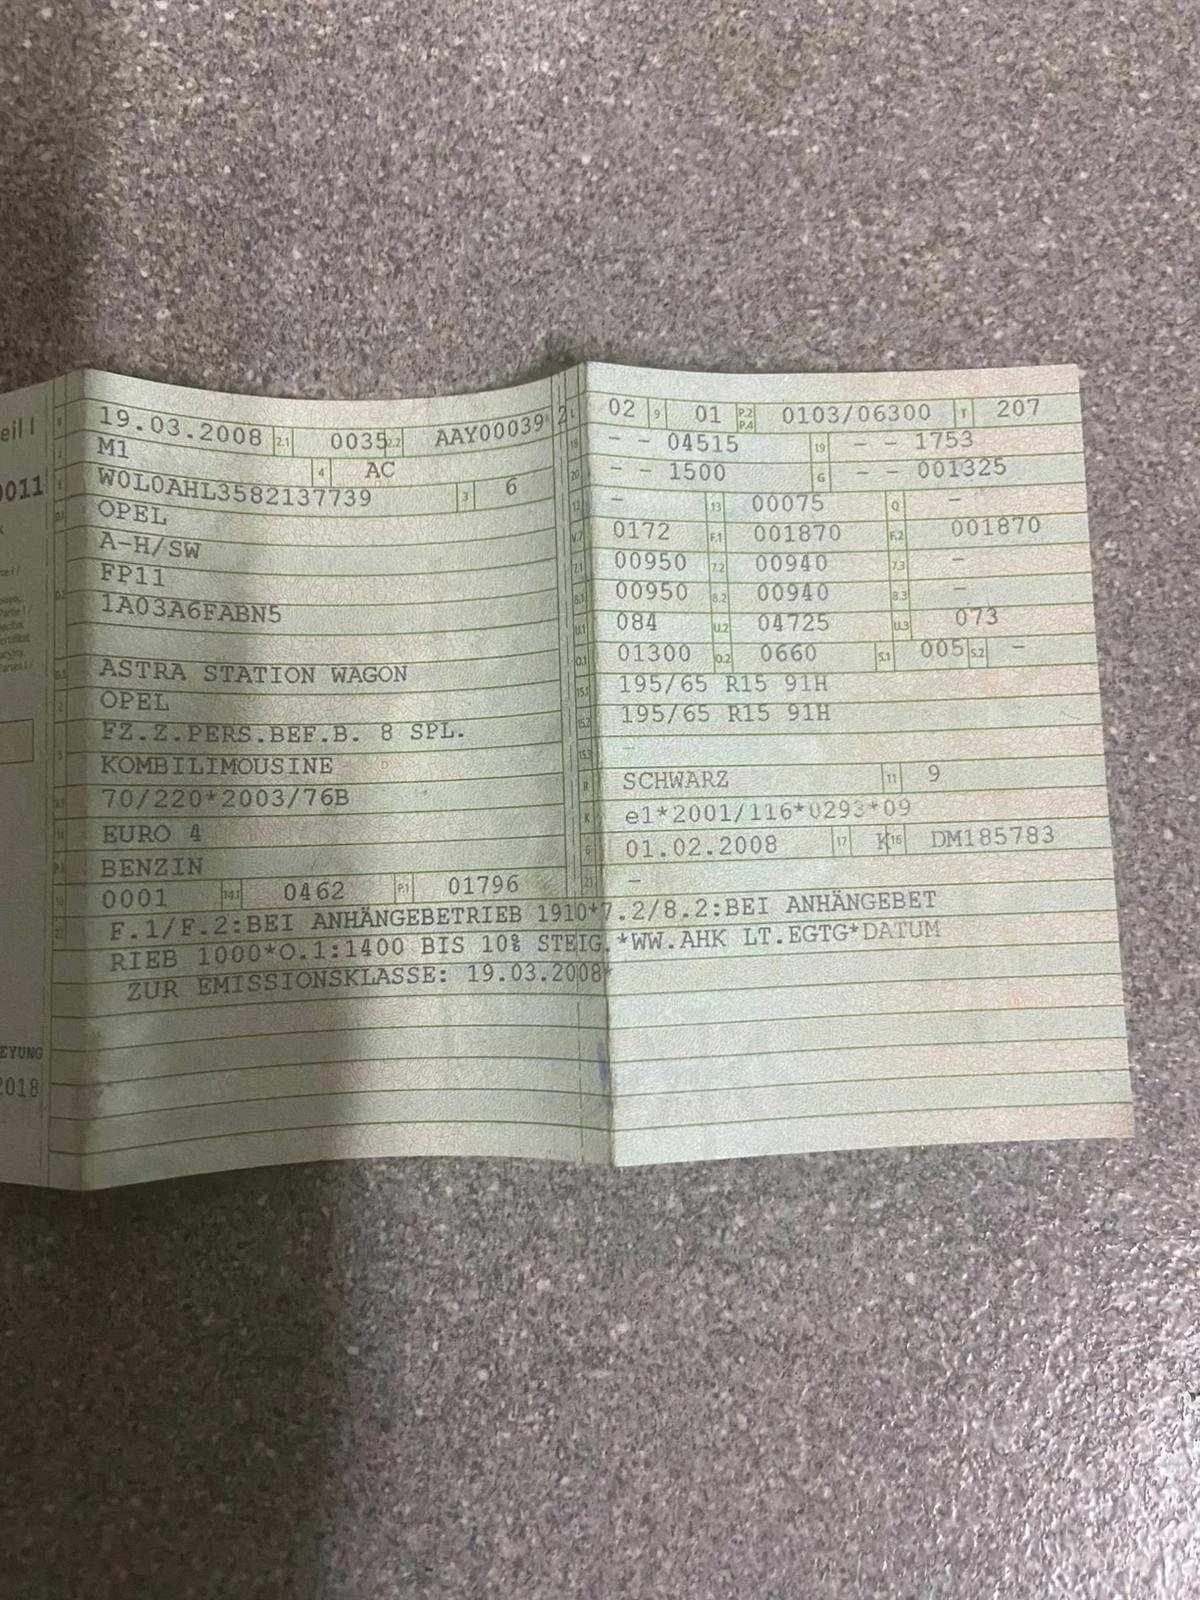 eil I
0011
EYUNG
2018
19.03.2008 2.1 0035 2.2 AAY00039 2
M1 4 AC
W0L0AHL3582137739 3 6
OPEL
A-H/SW
FP11
1A03A6FABN5
ASTRA STATION WAGON
OPEL
FZ.Z.PERS.BEF.B. 8 SPL.
KOMBILIMOUSINE
70/220*2003/76B
EURO 4
BENZIN
0001 14.1 0462 P.1 01796
02 9 01 P.2 P.4 0103/06300 T 207
18 - - 04515 19 - - 1753
20 - - 1500 G - - 001325
12 - 13 00075 Q -
V.7 0172 F.1 001870 F.2 001870
7.1 00950 7.2 00940 7.3 -
8.1 00950 8.2 00940 8.3 -
U.1 084 U.2 04725 U.3 073
O.1 01300 O.2 0660 S.1 005 S.2 -
15.1 195/65 R15 91H
15.2 195/65 R15 91H
15.3 -
R SCHWARZ 11 9
K e1*2001/116*0293*09
6 01.02.2008 17 K 16 DM185783
21 -
F.1/F.2:BEI ANHÄNGEBETRIEB 1910*7.2/8.2:BEI ANHÄNGEBET
RIEB 1000*O.1:1400 BIS 10% STEIG.*WW.AHK LT.EGTG*DATUM
ZUR EMISSIONSKLASSE: 19.03.2008*